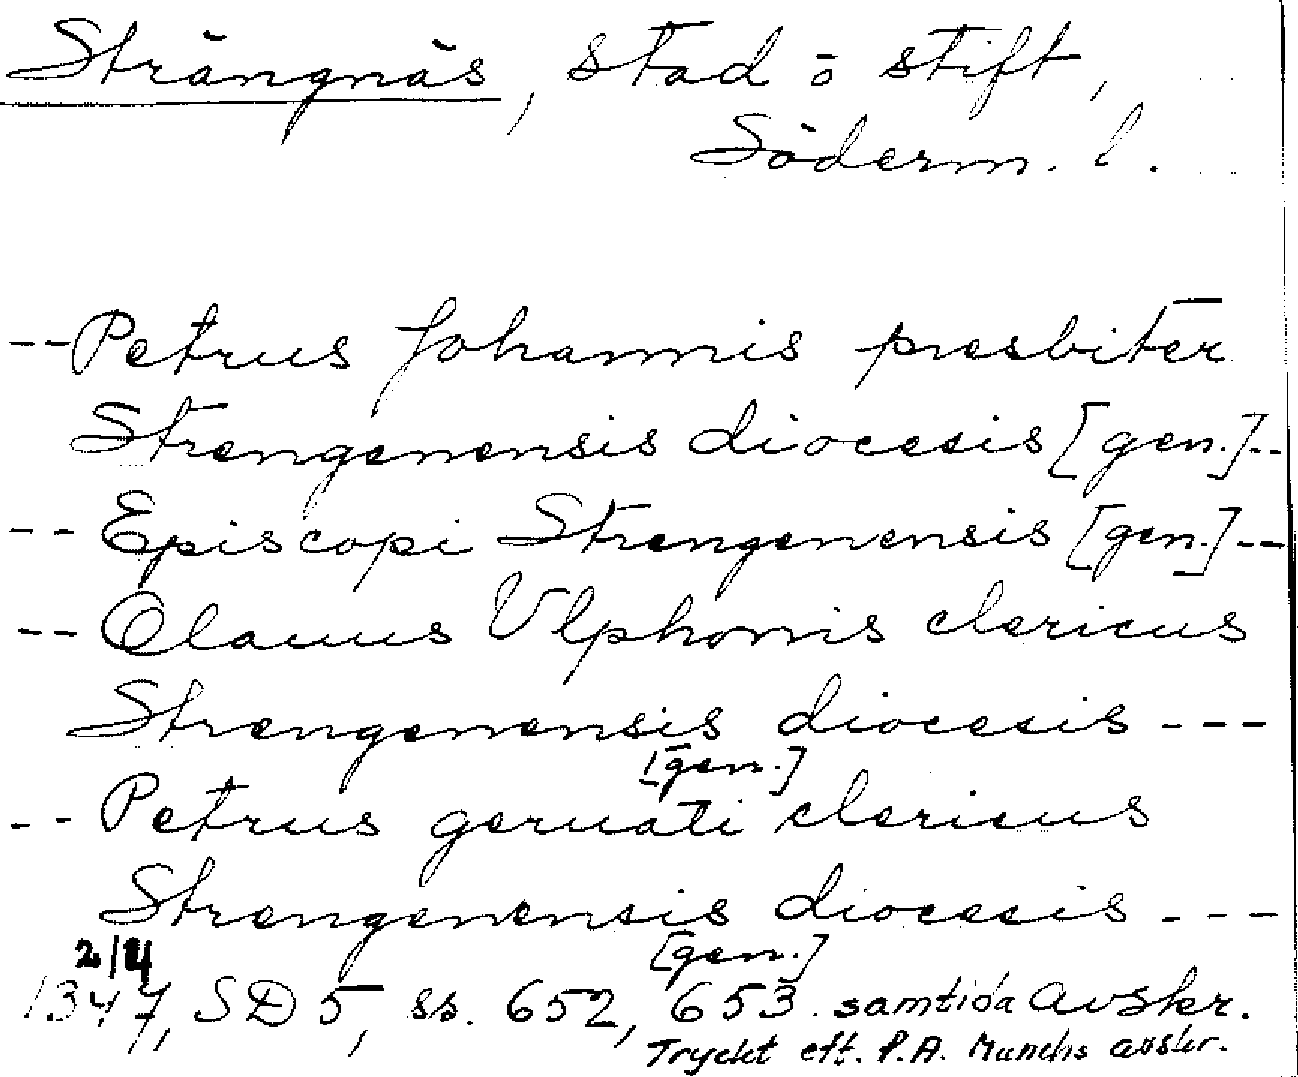 Strängnäs, stad o stift,
Söderm. l.
-- Petrus Johannis presbiter
Strengenensis diocesis [gen.] --
-- Episcopi Strengenensis [gen.] --
-- Olauus Vlphonis clericus
Strengenensis diocesis ---
[gen.]
-- Petrus geruati clericus
Strengenensis diocesis ---
2/4 [gen.]
1347, SD 5, ss. 652, 653. samtida avskr.
Tryckt eft. P.A. Munchs avskr.